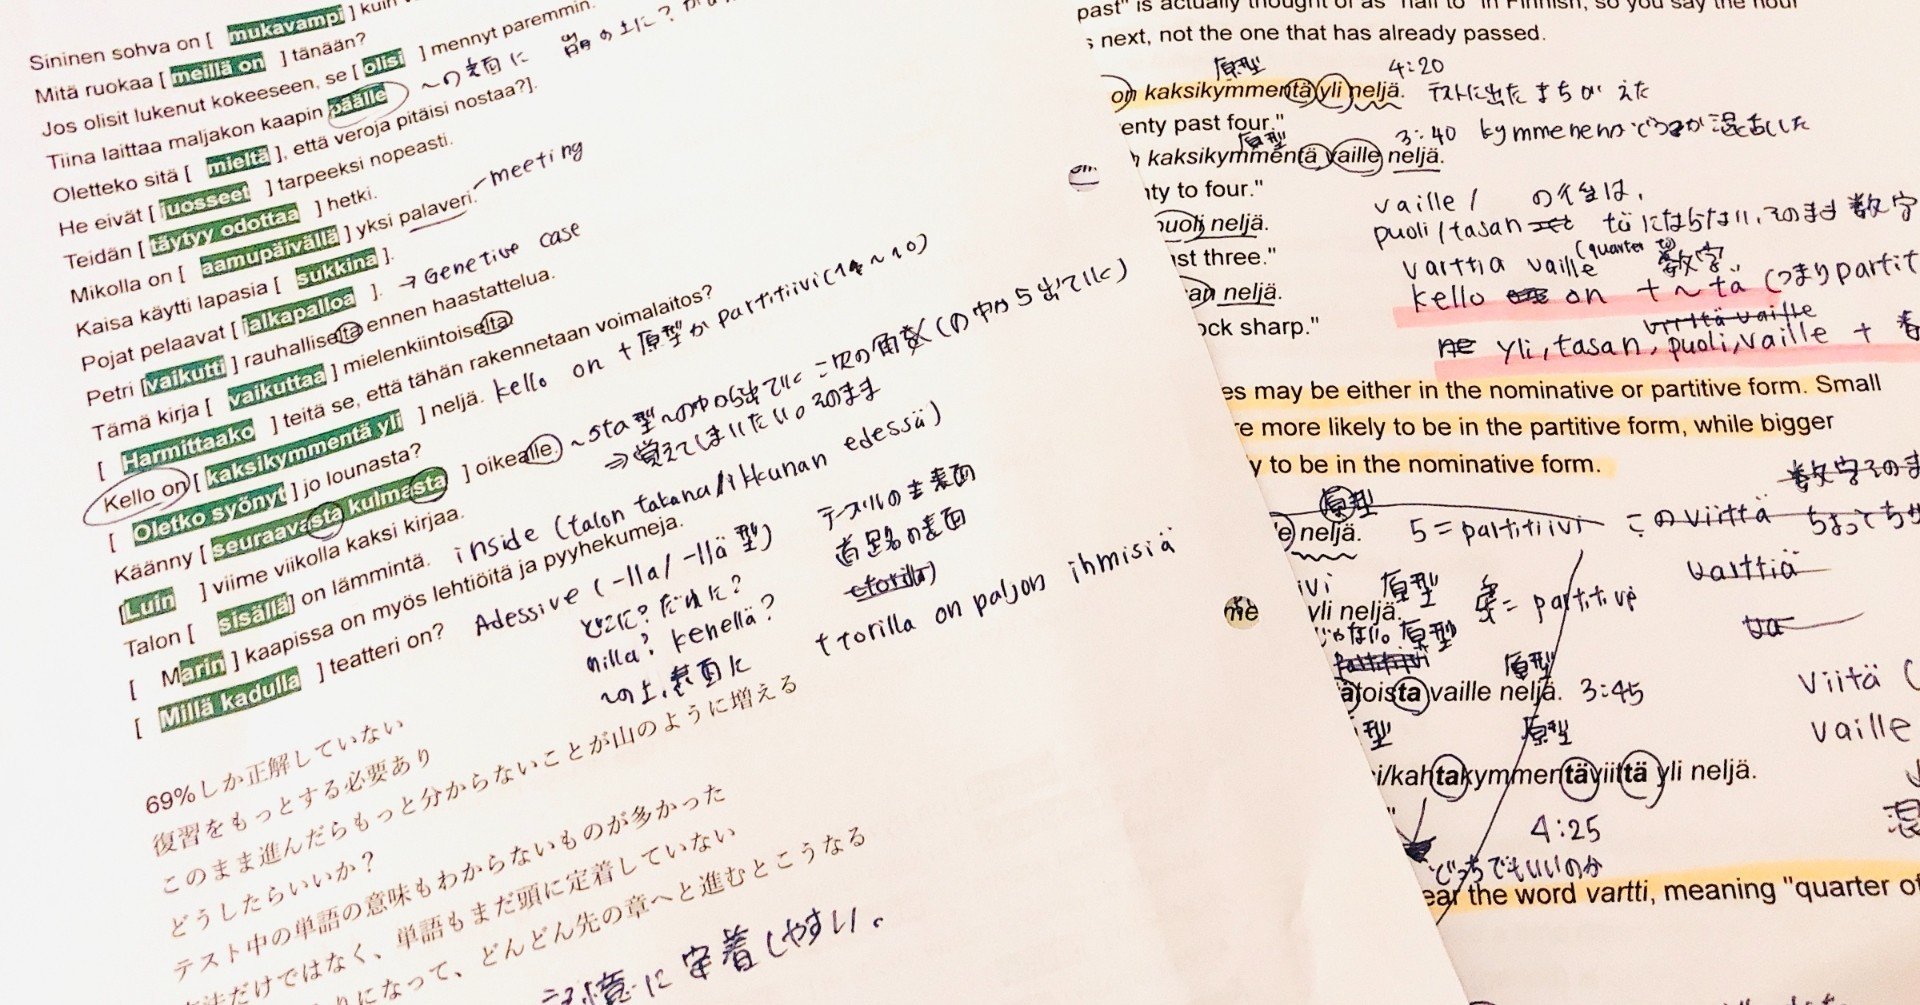 Sininen sohva on [ mukavampi ] kuin
Mitä ruokaa [ meillä on ] tänään?
Jos olisit lukenut kokeeseen, se [ olisi ] mennyt paremmin.
Tiina laittaa maljakon kaapin päälle ~の表面に 品の土に?
Oletteko sitä [ mieltä ], että veroja pitäisi nostaa?].
He eivät [ juosseet ] tarpeeksi nopeasti.
Teidän [ täytyy odottaa ] hetki.
Mikolla on [ aamupäivällä ] yksi palaveri. meeting
Kaisa käytti lapasia [ sukkina ].
Pojat pelaavat [ jalkapalloa ]. → Genetive case
Petri [vaikutti ] rauhalliselta ennen haastattelua.
Tämä kirja [ vaikuttaa ] mielenkiintoiselta.
[ Harmittaako ] teitä se, että tähän rakennetaan voimalaitos?
Kello on [ kaksikymmentä yli ] neljä. kello on +原型か partitiivi(1~10)
[ Oletko syönyt ] jo lounasta?
Käänny [ seuraavasta kulmasta ] oikealle. ~sta型 ~の中から出ていく 次の角を(の中から出ていく)
⇒覚えてしまいたい。そのまま
[Luin ] viime viikolla kaksi kirjaa.
Talon [ sisällä] on lämmintä. inside (talon takana/ikkunan edessä)
[ Marin ] kaapissa on myös lehtiöitä ja pyyhekumeja.
[ Millä kadulla ] teatteri on? Adessive (-lla/-llä型)
どこに?だれに?
millä? kenellä?
~の上、表面に
テーブルの主表面
道路の表面
torilla on paljon ihmisiä
69%しか正解していない
復習をもっとする必要あり
このまま進んだらもっと分からないことが山のように増える
どうしたらいいか?
テスト中の単語の意味もわからないものが多かった
だけではなく、単語もまだ頭に定着していない
になって、どんどん先の章へと進むとこうなる
記憶に定着しやすい。
past" is actually thought of as "half to" in Finnish, so you say the hour
s next, not the one that has already passed.
原型 4:20
on kaksikymmentä yli neljä. テストに出た まちがえた
enty past four."
原型 3:40 kymmenenがどうるか混乱した
kaksikymmentä vaille neljä.
nty to four."
vaille / の後は、
puoli neljä.
puoli/tasan täにならない、そのまま数字
ast three."
varttia vaille (quarter to) 数字
an neljä.
kello on + ~tä (つまりpartit
ock sharp."
yli, tasan, puoli, vaille +
es may be either in the nominative or partitive form. Small
re more likely to be in the partitive form, while bigger
y to be in the nominative form.
数字そのま
原型
neljä. 5=partitiivi このviittä
varttiä
ivi 原型
yli neljä. = partitive
じゃない。原型
原型
ätoista vaille neljä. 3:45
viitä (
型 原型
vaille
i/kahtakymmentäviittä yli neljä.
4:25
どっちでもいいのか
ear the word vartti, meaning "quarter of